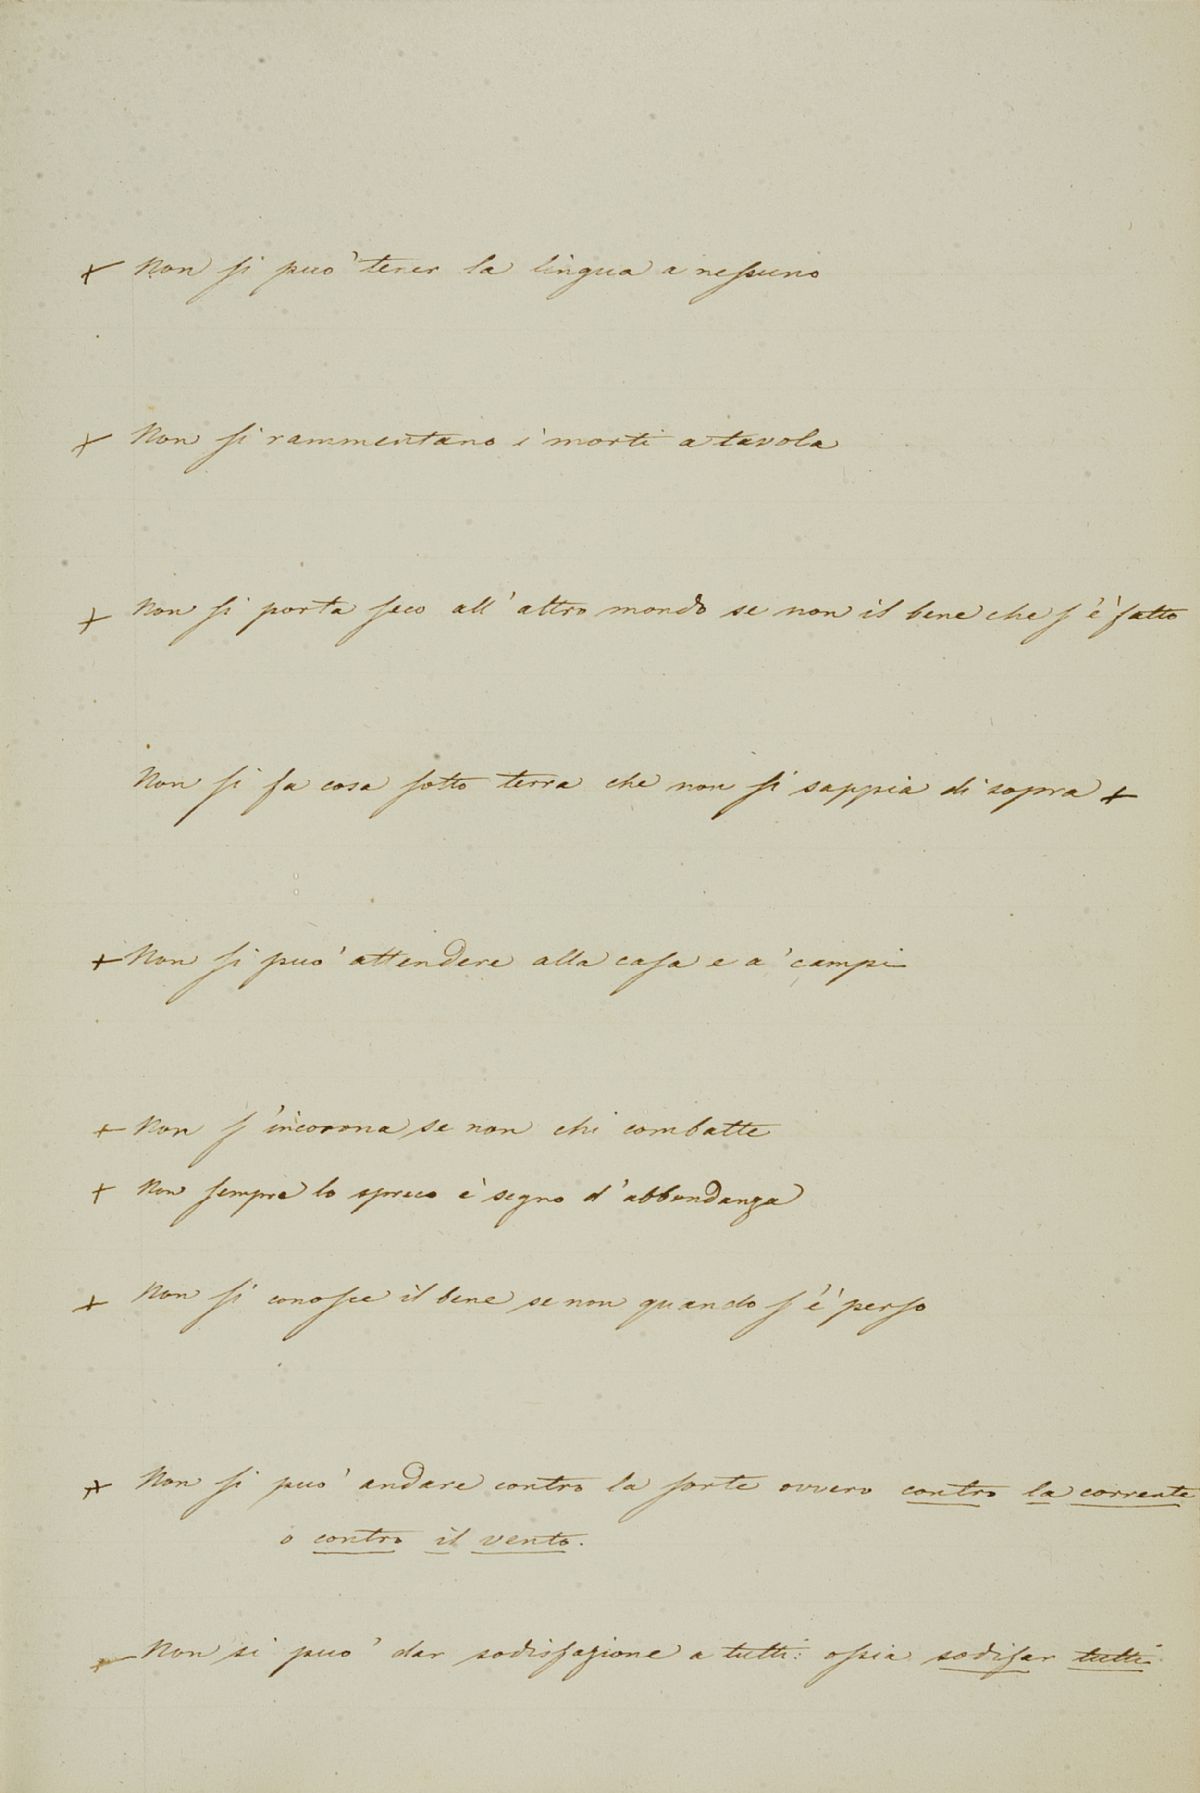 + Non si può tener la lingua a nessuno
+ Non si rammentano i morti a tavola
+ Non si porta seco all'altro mondo se non il bene che s'è fatto
Non si fa cosa sotto terra che non si sappia di sopra +
+ Non si può attendere alla casa e a' campi
+ Non s'incorona se non chi combatte
+ Non sempre lo spreco è segno d'abbondanza
+ Non si conosce il bene se non quando s'è perso
+ Non si può andare contro la sorte ovvero contro la corrente
o contro il vento.
+ Non si può dar sodisfazione a tutti: ossia sodisfar tutti